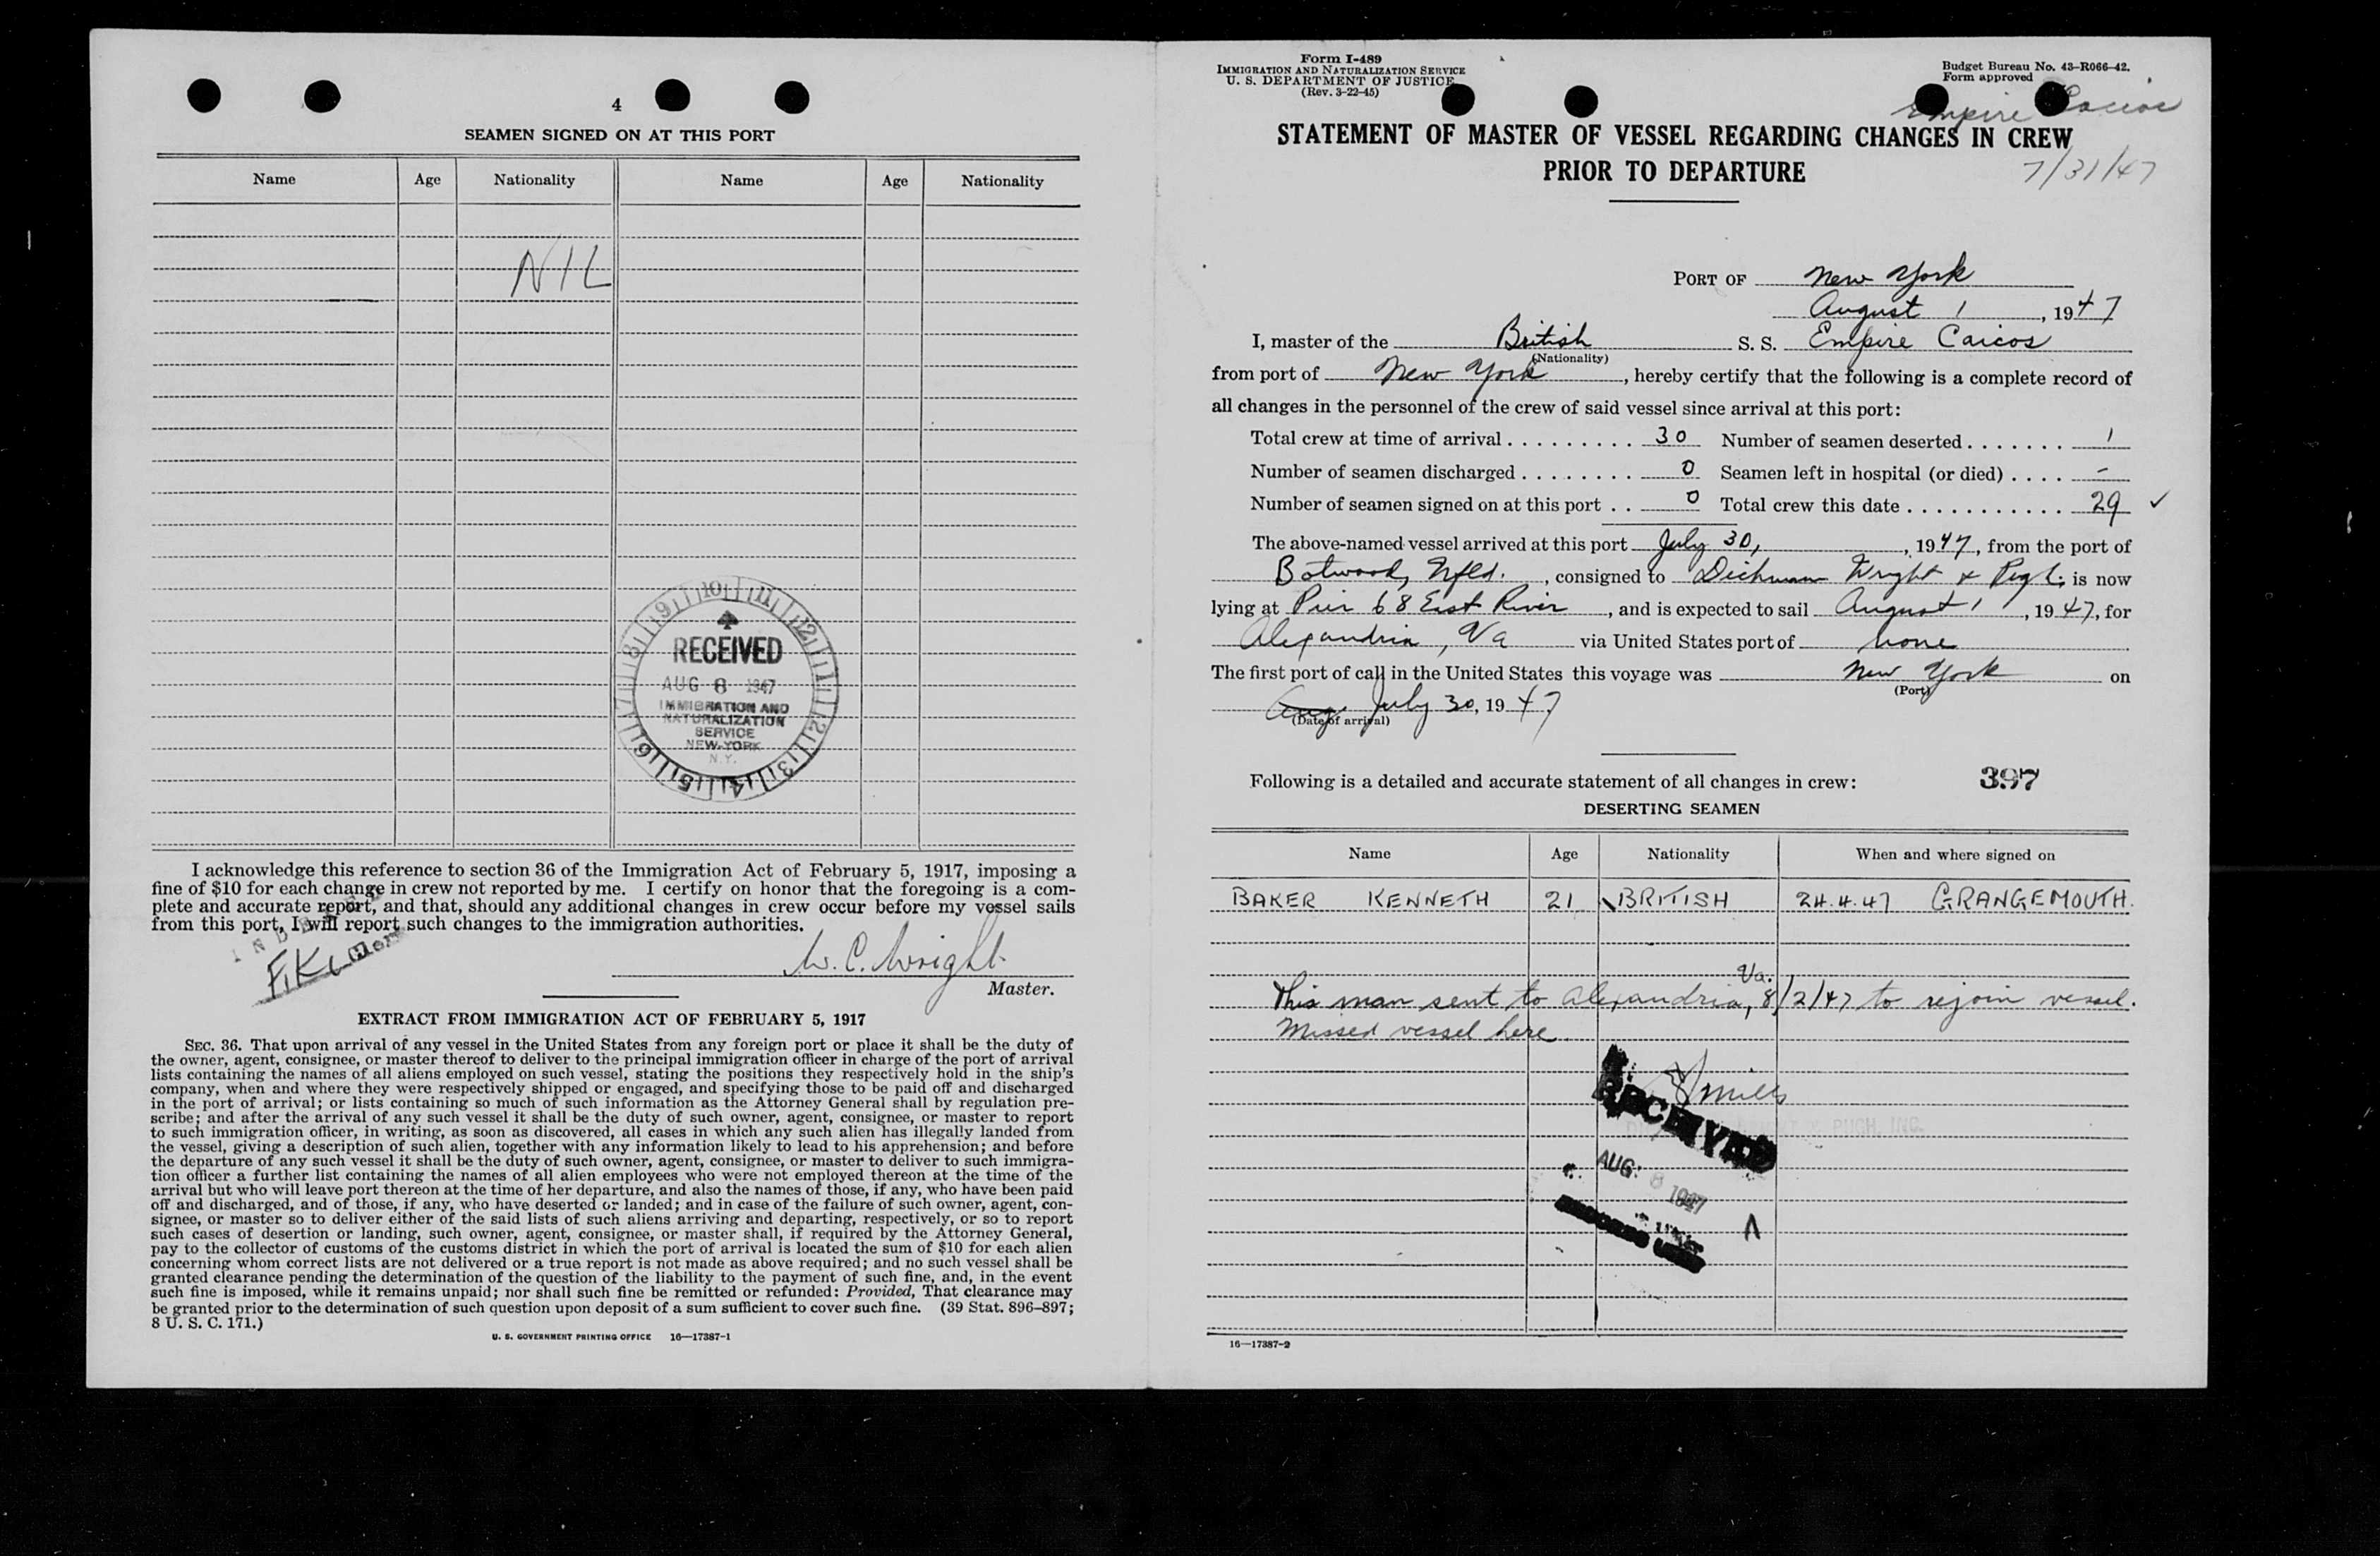 4
SEAMEN SIGNED ON AT THIS PORT
Name Age Nationality Name Age Nationality
NIL
8 9 10 11 12 1 2 3 4 5 6 7
RECEIVED
AUG 8 1947
IMMIGRATION AND
NATURALIZATION
SERVICE
NEW YORK
N.Y.
I acknowledge this reference to section 36 of the Immigration Act of February 5, 1917, imposing a
fine of $10 for each change in crew not reported by me. I certify on honor that the foregoing is a com-
plete and accurate report, and that, should any additional changes in crew occur before my vessel sails
from this port, I will report such changes to the immigration authorities.
W. C. Wright
Master.
EXTRACT FROM IMMIGRATION ACT OF FEBRUARY 5, 1917
SEC. 36. That upon arrival of any vessel in the United States from any foreign port or place it shall be the duty of
the owner, agent, consignee, or master thereof to deliver to the principal immigration officer in charge of the port of arrival
lists containing the names of all aliens employed on such vessel, stating the positions they respectively hold in the ship's
company, when and where they were respectively shipped or engaged, and specifying those to be paid off and discharged
in the port of arrival; or lists containing so much of such information as the Attorney General shall by regulation pre-
scribe; and after the arrival of any such vessel it shall be the duty of such owner, agent, consignee, or master to report
to such immigration officer, in writing, as soon as discovered, all cases in which any such alien has illegally landed from
the vessel, giving a description of such alien, together with any information likely to lead to his apprehension; and before
the departure of any such vessel it shall be the duty of such owner, agent, consignee, or master to deliver to such immigra-
tion officer a further list containing the names of all alien employees who were not employed thereon at the time of the
arrival but who will leave port thereon at the time of her departure, and also the names of those, if any, who have been paid
off and discharged, and of those, if any, who have deserted or landed; and in case of the failure of such owner, agent, con-
signee, or master so to deliver either of the said lists of such aliens arriving and departing, respectively, or so to report
such cases of desertion or landing, such owner, agent, consignee, or master shall, if required by the Attorney General,
pay to the collector of customs of the customs district in which the port of arrival is located the sum of $10 for each alien
concerning whom correct lists are not delivered or a true report is not made as above required; and no such vessel shall be
granted clearance pending the determination of the question of the liability to the payment of such fine, and, in the event
such fine is imposed, while it remains unpaid; nor shall such fine be remitted or refunded: Provided, That clearance may
be granted prior to the determination of such question upon deposit of a sum sufficient to cover such fine. (39 Stat. 896–897;
8 U. S. C. 171.)
U. S. GOVERNMENT PRINTING OFFICE 16—17387-1
Form I-489
IMMIGRATION AND NATURALIZATION SERVICE
U. S. DEPARTMENT OF JUSTICE
(Rev. 3-22-45)
Budget Bureau No. 43–R066–42.
Form approved
Empire Caicos
STATEMENT OF MASTER OF VESSEL REGARDING CHANGES IN CREW
PRIOR TO DEPARTURE
7/31/47
PORT OF New York
August 1, 1947
I, master of the British S. S. Empire Caicos
(Nationality)
from port of New York, hereby certify that the following is a complete record of
all changes in the personnel of the crew of said vessel since arrival at this port:
Total crew at time of arrival . . . . . . . . . 30 Number of seamen deserted . . . . . . . 1
Number of seamen discharged . . . . . . . . 0 Seamen left in hospital (or died) . . . . -
Number of seamen signed on at this port . . 0 Total crew this date . . . . . . . . . . . 29 ✓
The above-named vessel arrived at this port July 30, 1947, from the port of
Botwood, Nfld., consigned to Wright & is now
lying at Pier 68 East River, and is expected to sail August 1, 1947, for
Alexandria, Va via United States port of none
The first port of call in the United States this voyage was New York on
(Port)
Aug July 30, 1947
(Date of arrival)
Following is a detailed and accurate statement of all changes in crew: 397
DESERTING SEAMEN
Name Age Nationality When and where signed on
BAKER KENNETH 21 BRITISH 24.4.47 GRANGEMOUTH.
This man sent to Alexandria, Va. 8/2/47 to rejoin vessel.
Missed vessel here
Mills
RECEIVED
AUG 8 1947
16—17387-2